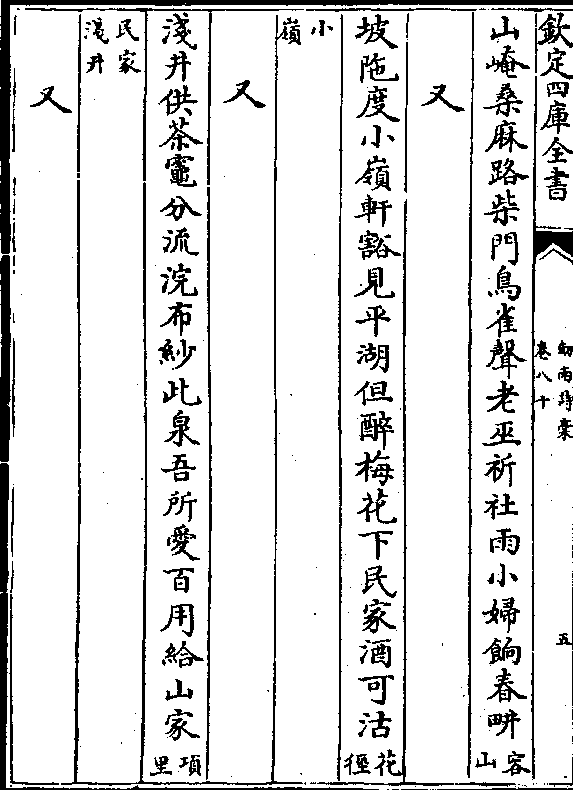 欽定四庫全書
劍南詩稾
卷八十
五
山崦桑麻路柴門鳥雀聲老巫祈社雨小婦餉春畊容山
又
坡陁度小嶺軒豁見平湖但醉梅花下民家酒可沽花徑
小嶺
又
淺井供茶竈分流浣布紗此泉吾所愛百用給山家項里
民家淺井
又